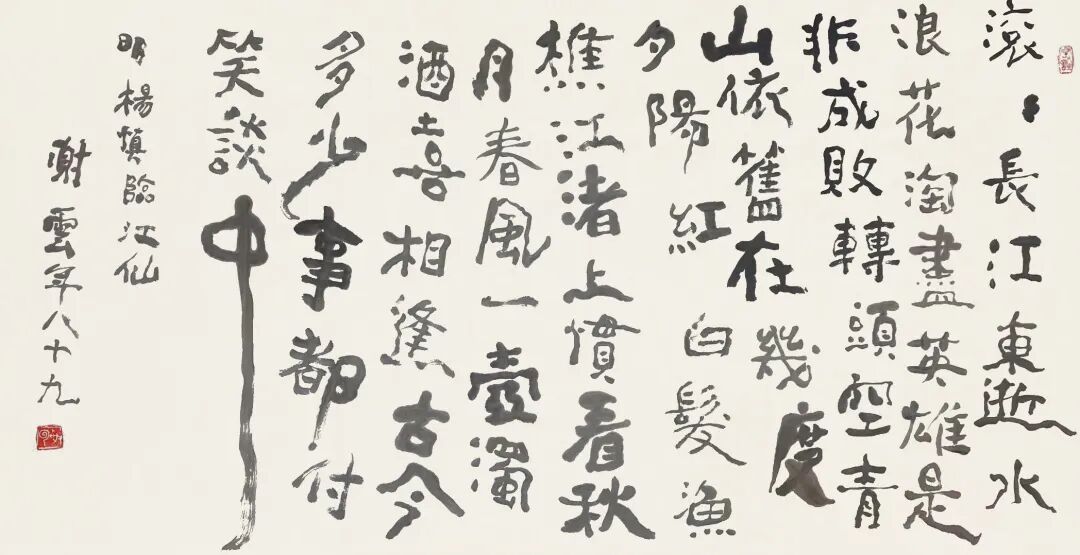 滚〻長江東逝水
浪花淘盡英雄是
非成敗轉頭空青
山依舊在幾度
夕陽紅白髮漁
樵江渚上慣看秋
月春風一壺濁
酒喜相逢古今
多少事都付
笑談中
明楊慎臨江仙
謝雲年八十九